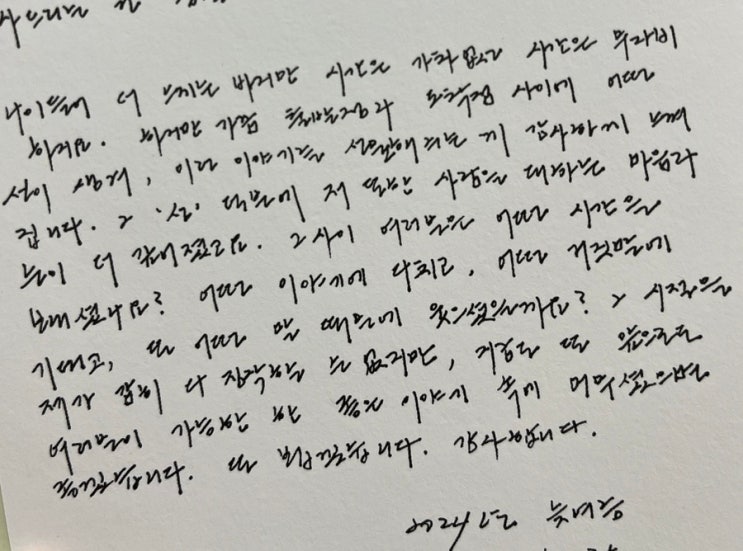 나이들며 더 느끼는 바지만 시간은 가차없고 사람은 무자비
하지요. 하지만 가끔 출발점과 도착점 사이에 어떤
선이 생겨, 이런 이야기를 선물해 주는 게 감사하게 느껴
집니다. 그 '선' 덕분에 저 또한 사람을 대하는 마음가
짐이 더 깊어졌고요. 그사이 여러분은 어떤 시간을
보내셨나요? 어떤 이야기에 다치고, 어떤 거짓말에
기대고, 또 어떤 말 때문에 웃으셨을까요? 그 시간을
제가 감히 다 짐작할 순 없지만, 지금도 또 앞으로도
여러분이 가능한 한 좋은 이야기 속에 머무셨으면
좋겠습니다. 또 뵙겠습니다. 감사합니다.
2024년 늦여름